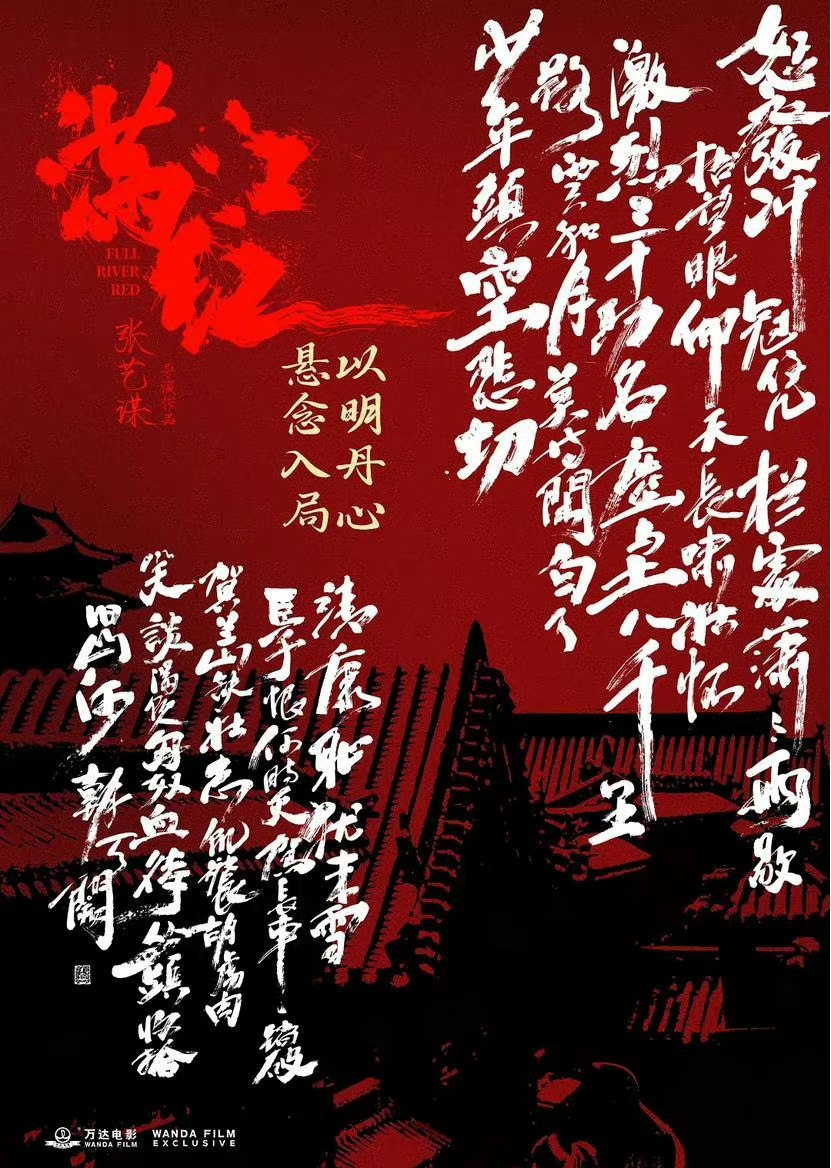 满江红
FULL
RIVER
RED
张艺谋
导演作品
以明丹心
悬念入局
怒發冲冠凭栏處潇〻雨歇
抬望眼仰天長啸壮怀
激烈三十功名塵与土八千里
路雲和月莫等閒白了
少年頭空悲切
靖康耻犹未雪
臣子恨何時灭駕長車踏破
賀兰山缺壮志飢餐胡虏肉
笑談渴饮匈奴血待從頭收拾
旧山河朝天闕
万达电影
WANDA FILM
WANDA FILM
EXCLUSIVE